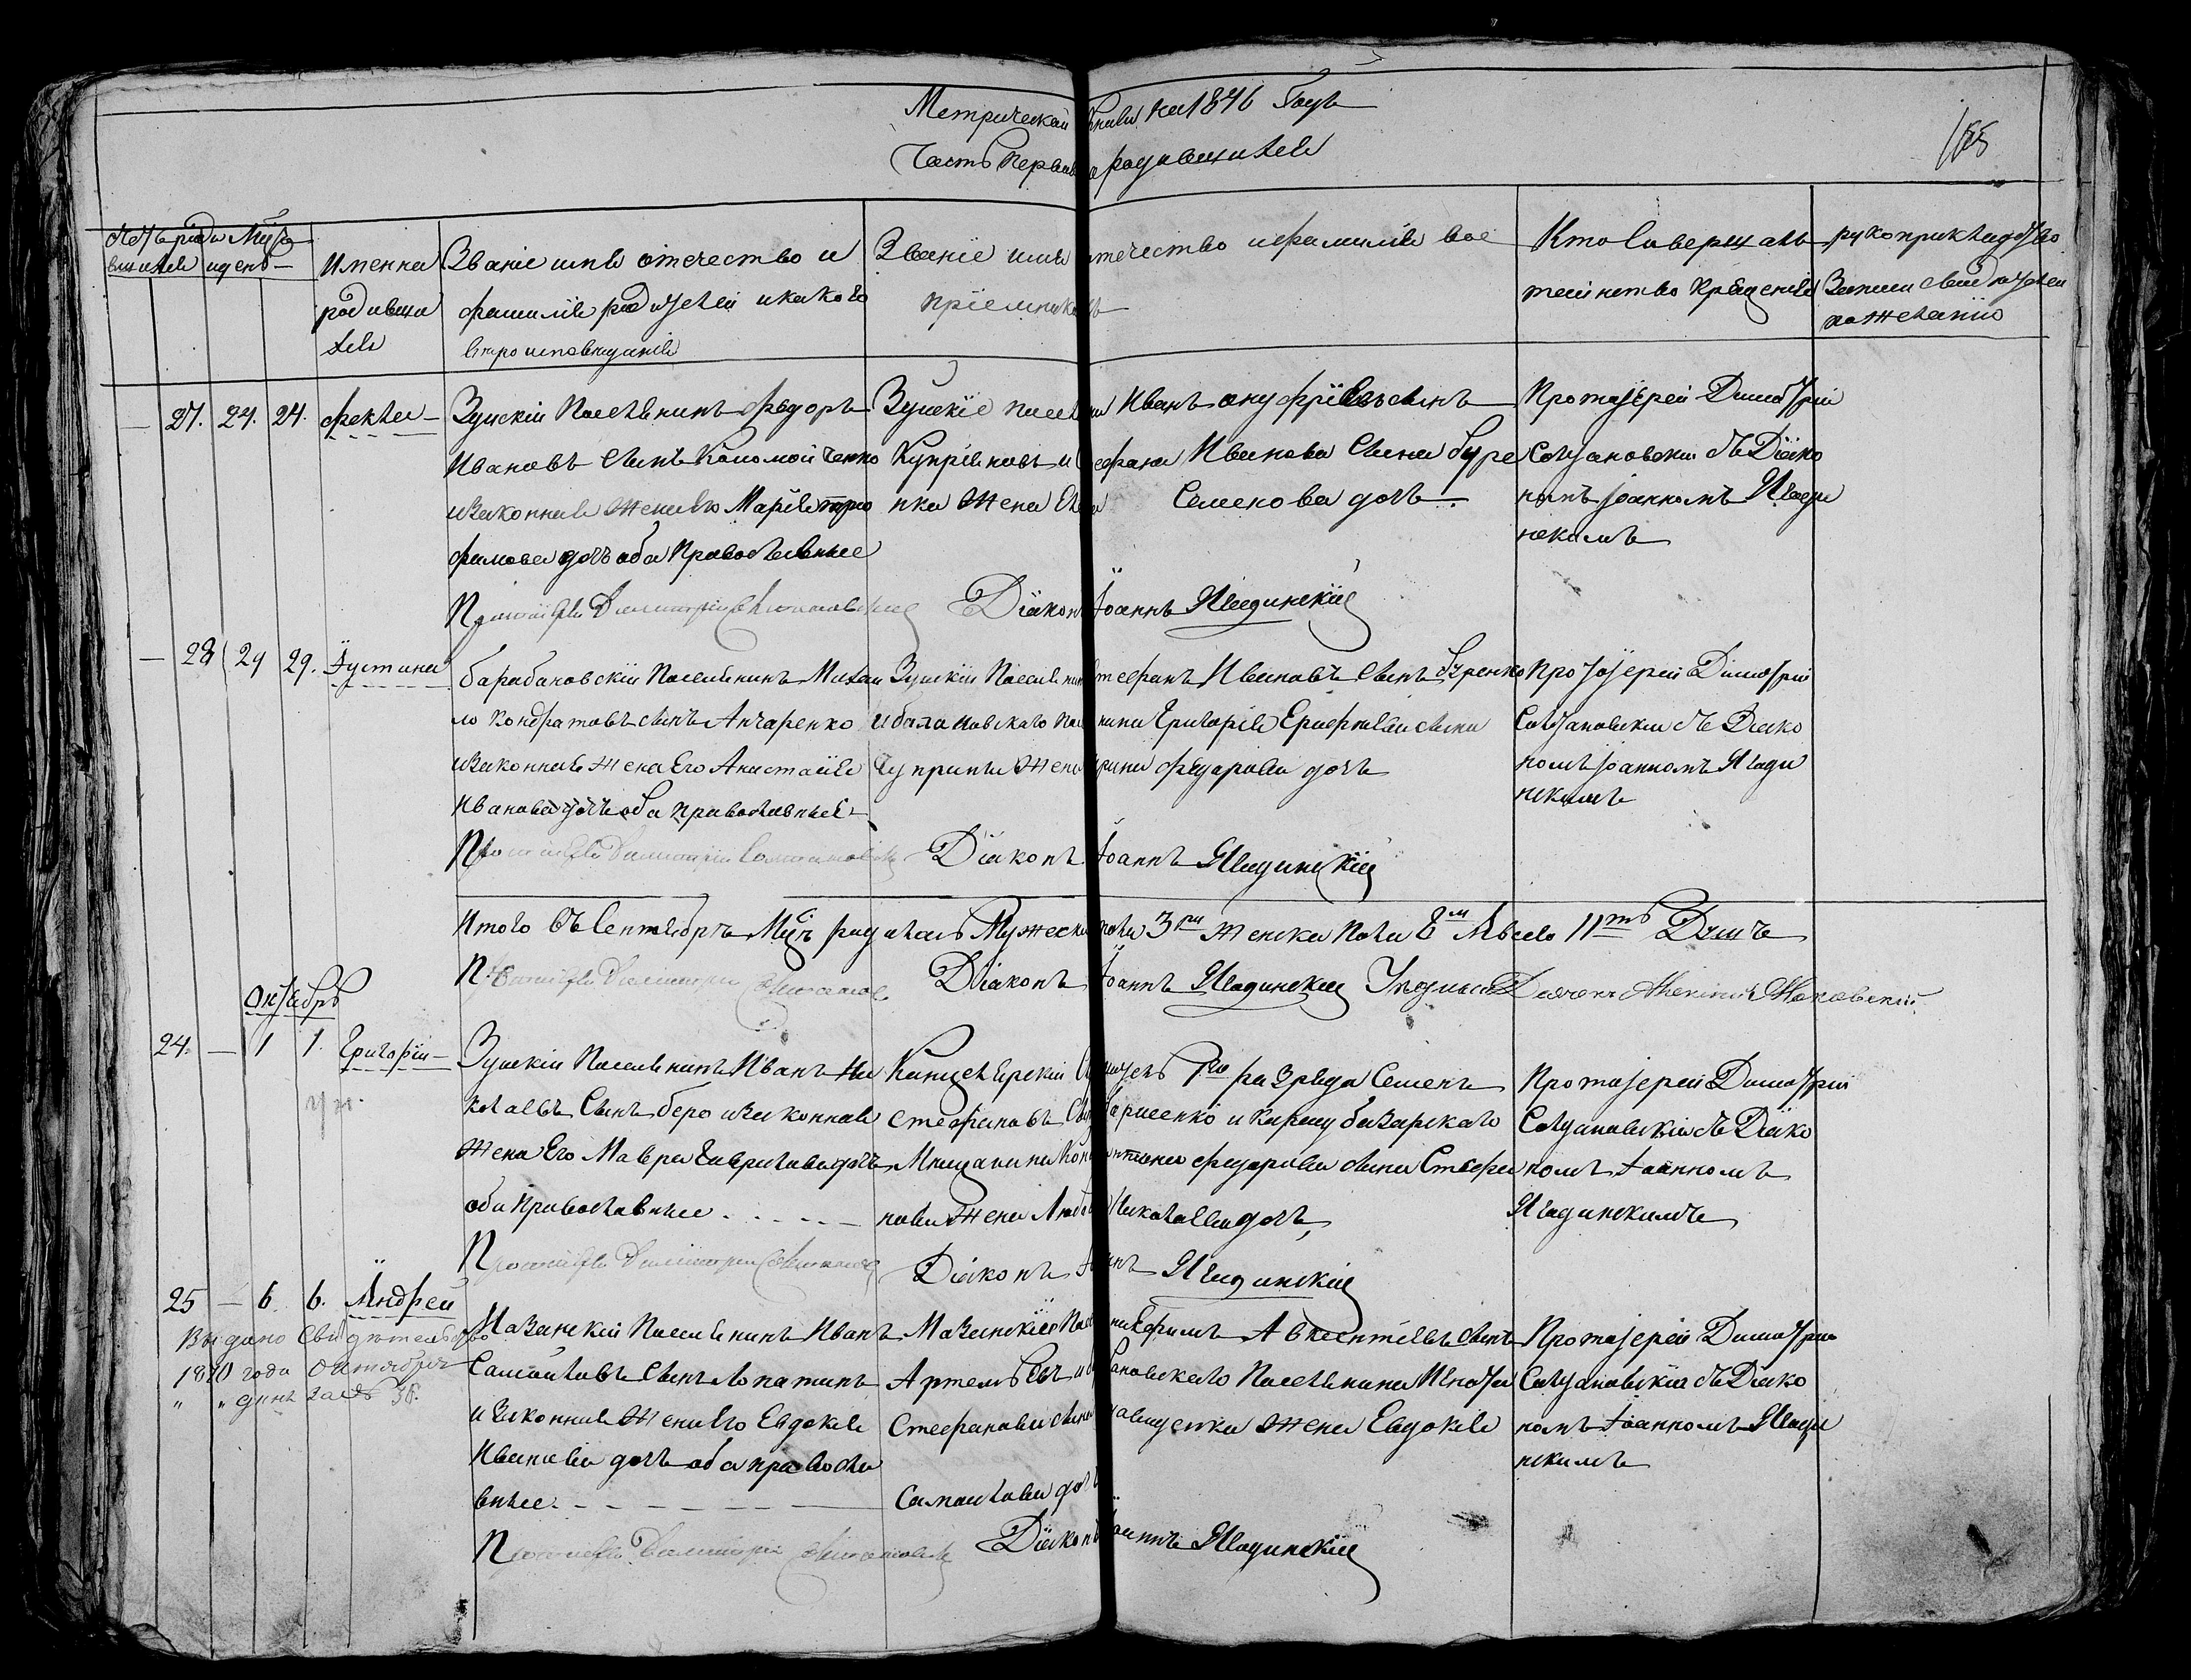 Метрической книги на 1846 Годъ
Часть Первая о родившихся
155
Счетъ роди Мѣся
вшихся и день
Именна
родивши
хся
Званіе имя отечество и
фамилія родителей и какого
вѣроисповѣданія
Званіе имя отечество и фамилія вос
пріемниковъ
Кто совершалъ
таинство крещенія
рукоприкладство
Записи свидѣтелей
по желанію
27. 24. 24. Фекла
Зуйскій Поселянинъ Федоръ
Ивановъ сынъ Коломойченко
и законная жена его Марія Тро
фимова дочь оба Православные
Зуйскіе поселяне Иванъ Онуфріевъ сынъ
Купріяновъ и Стефана Иванова сына Буре
нка жена Семенова дочь
Протоіерей Димитрій
Солтановскій съ Діяко
номъ Іоанномъ Ягодин
скимъ
Протоіерей Димитрій Солтановскій Діяконъ Іоаннъ Ягодинскій
28 29 29. Іустина
Барабановскій Поселянинъ Михаи
ло Кондратовъ сынъ Анчаренко
и законная жена Его Анастасія
Иванова дочь оба православные
Зуйскій Поселянинъ Стефанъ Ивановъ сынъ Буренко
и балановскаго поселянина Григорія Ерофѣева сына
Чуприны жена Ирина Федорова дочь
Протоіерей Димитрій
Солтановскій съ Діяко
номъ Іоанномъ Ягоди
нскимъ
Протоіерей Димитрій Солтановскій Діяконъ Іоаннъ Ягодинскій
Итого Въ Сентябрѣ Мцѣ родилось Мужеска пола 3ри женска пола 8м А всего 11ть Душъ
Протоіерей Димитрій Солтановск Діяконъ Іоаннъ Ягодинскій Дьячекъ Маковскій
Октябрь
24. 1 1. Григорій
Зуйскій Поселянинъ Иванъ Ни
колаевъ Сынъ беро и законная
жена Его Мавра Гаврилова дочь
оба православные
Канцелярскій Служитель 1го разряда Семенъ
Стефановъ и Карасубазарскаго
Мещанина Константина Федорова сына Стефа
нова жена Любовь Николаева дочь,
Протоіерей Димитрій
Солтановскій съ Діяко
номъ Іоанномъ
Ягодинскимъ
Протоіерей Димитрій Солтановск Діяконъ Іоаннъ Ягодинскій
25 6. 6. Андрей
Выдано Свидѣтельство
1870 года Октября
Мазанскій Поселянинъ Иванъ
Самойловъ сынъ Лопатинъ
и законная жена Его Евдокія
Иванова дочь оба правосла
вные
Мазанскій Поселянинъ Ефимъ Авксентіевъ сынъ
Артемьевъ и поселянина Игната
Стефанова сына жена Евдокія
Самойлова дочь
Протоіерей Димитрій
Солтановскій съ Діяко
номъ Іоанномъ Ягоди
нскимъ
Протоіерей Димитрій Солтановскій Діяконъ Іоаннъ Ягодинскій